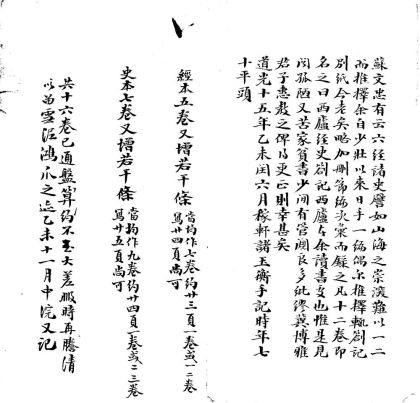 蘇文忠有云六經諸史譬如山海之崇深難以一二
而推擇余自少壯以來日手一編偶尔推擇輒劄記
別紙今老矣略加刪節編次彙而錄之凡十二卷即
名之曰西廬經史劄記西廬古余讀書
聞孤陋又苦家貧書少間有管闚良多紕繆冀博雅
君子惠教之俾更正則幸甚矣
道光十五年乙未閏六月稼軒諸玉衡手記時年七
十平頭
經本五卷又增若干條
當均作七卷約廿三頁一卷或一二卷
寫廿四頁尚可
史本七卷又增若干條
當均作九卷約廿四頁一卷或一二三卷
寫廿五頁尚可
共十六卷已通盤算約不至大差暇時再謄清
以留雪泥鴻爪之迹乙未十一月中浣又記